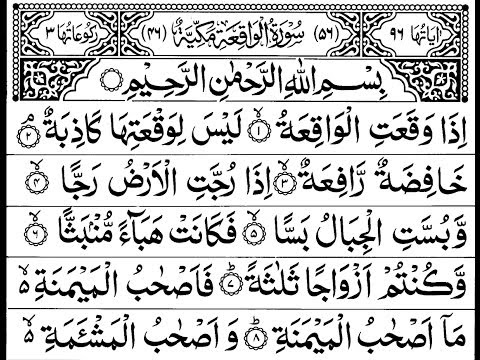 اٰیَاتُهَا ٩٦ (٥٦) سُوْرَةُ الْوَاقِعَةِ مَكِّیَّةٌ (٤٦) رُكُوْعَاتُهَا ٣
بِسْمِ اللهِ الرَّحْمٰنِ الرَّحِیْمِ
اِذَا وَقَعَتِ الْوَاقِعَةُ ۙ‏﴿١﴾ لَیْسَ لِوَقْعَتِهَا كَاذِبَةٌ ۘ‏﴿٢﴾
خَافِضَةٌ رَّافِعَةٌ ۙ‏﴿٣﴾ اِذَا رُجَّتِ الْاَرْضُ رَجًّا ۙ‏﴿٤﴾
وَّ بُسَّتِ الْجِبَالُ بَسًّا ۙ‏﴿٥﴾ فَكَانَتْ هَبَآءً مُّنْۢبَثًّا ۙ‏﴿٦﴾
وَّ كُنْتُمْ اَزْوَاجًا ثَلٰثَةً ؕ‏﴿٧﴾ فَاَصْحٰبُ الْمَیْمَنَةِ ۙ۬
مَاۤ اَصْحٰبُ الْمَیْمَنَةِ ؕ‏﴿٨﴾ وَ اَصْحٰبُ الْمَشْـَٔمَةِ ۙ۬